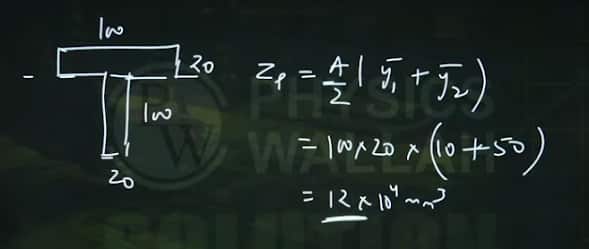 100
20
100
20
Zp = A/2 ( ȳ1 + ȳ2 )
= 100 × 20 × (10 + 50)
= 12 × 10⁴ mm³
PHYSICS
WALLAH